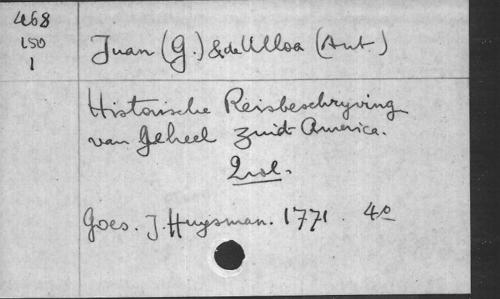 468
150
1
Juan (G.) & de Ulloa (Ant.)
Historische Reisbeschryving
van Geheel Zuid-America.
2 vol.
Goes. J. Huysman. 1771. 4o